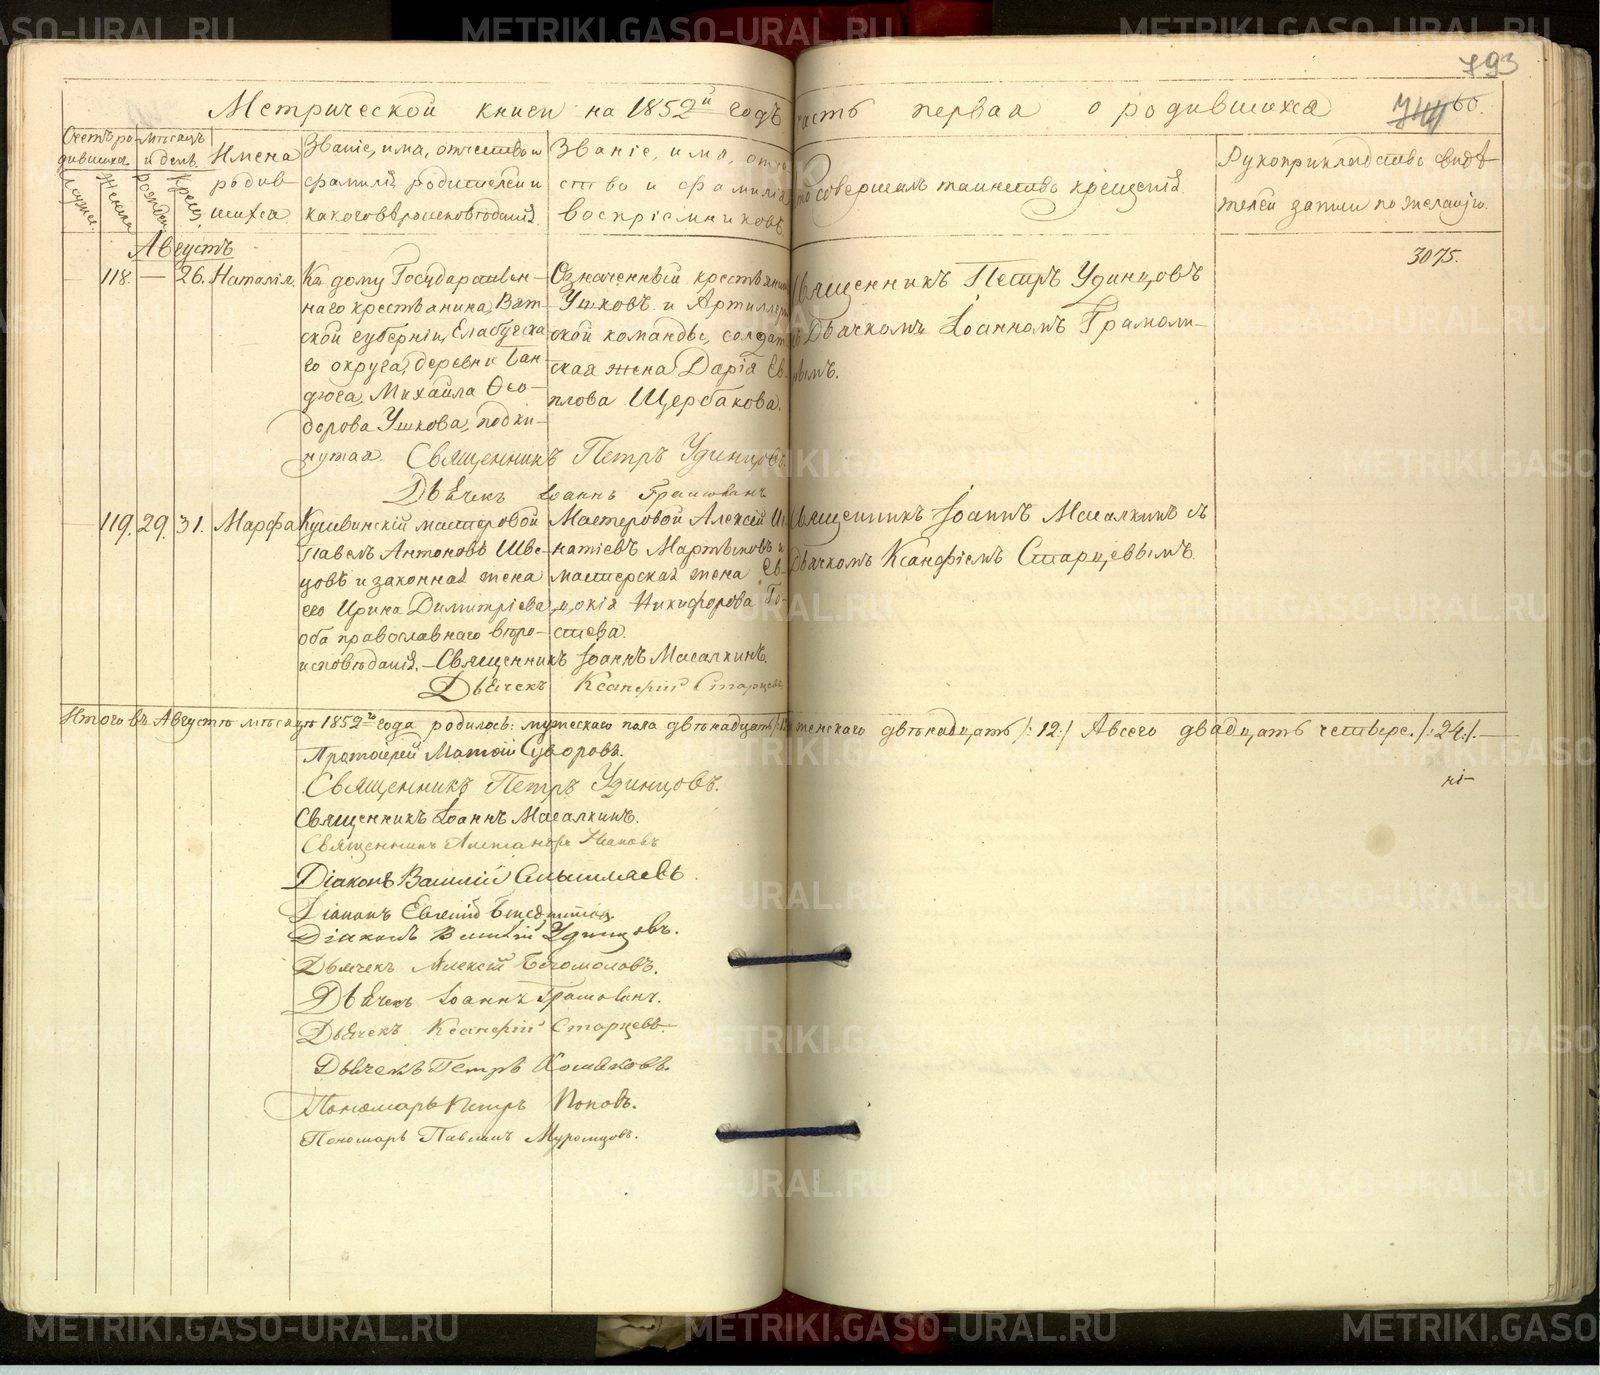 793
Метрической книги на 1852й годъ часть первая о родившихся
60.
Счетъ родившихся
Мужеска
Женска
Мѣсяцъ и день
рожден.
Крещ.
Имена родившихся
Званіе, имя, отчество и фамилія родителей и какого вѣроисповѣданія
Званіе, имя, отчество и фамилія воспріемниковъ
Кто совершалъ таинство крещенія
Рукоприкладство свидѣтелей записи по желанію.
Августъ
3075.
118. — 26. Наталія.
Къ дому Государствен-
наго крестьянина, Вят-
ской губерніи, Елабужска-
го округа, деревни Бан-
дюга, Михайла Ѳео-
дорова Ушкова, подки-
нутая.
Означенный крестьянинъ
Ушковъ и Артиллерій-
ской команды, солдат-
ская жена Дарія Ев-
плова Щербакова.
Священникъ Петръ Удинцовъ
съ Дьячкомъ Іоанномъ Грамоли-
нымъ.
Священникъ Петръ Удинцовъ.
Дьячекъ Іоаннъ
119. 29. 31. Марфа
Кушвинскій мастеровой
Павелъ Антоновъ Шве-
цовъ и законная жена
его Ирина Димитріева,
оба православнаго вѣро-
исповѣданія.
Мастеровой Алексѣй Иг-
натіевъ Мартьяновъ и
мастерская жена Ев-
докія Никифорова Го-
стева.
Священникъ Іоаннъ Масалкинъ съ
Дьячкомъ Ксанфіемъ Старцевымъ.
Священникъ Іоаннъ Масалкинъ.
Дьячекъ Ксанфій Старцевъ
Итого въ Августѣ мѣсяцѣ 1852го года родилось: мужескаго пола двѣнадцать /:12:/ женскаго двѣнадцать /:12:/ А всего двадцать четыре. /:24:/. —
Протоіерей Матѳій Суворовъ.
Священникъ Петръ Удинцовъ.
Священникъ Іоаннъ Масалкинъ.
Священникъ Александръ Поповъ
Діаконъ Василій Смышляевъ
Діаконъ Евгеній
Діаконъ Василій Удинцовъ.
Дьячекъ Алексѣй Богомоловъ.
Дьячекъ Іоаннъ
Дьячекъ Ксанфій Старцевъ.
Дьячекъ Петръ
Пономарь Петръ Поповъ.
Пономарь Павелъ Муромцовъ.
METRIKI.GASO-URAL.RU